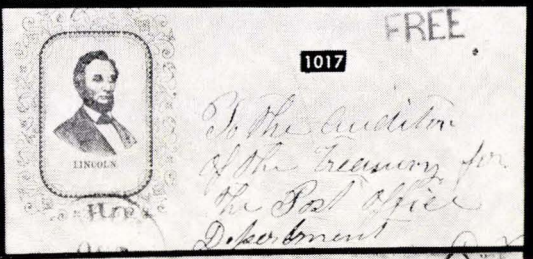 FREE
1017
LINCOLN
To the Auditor
of the Treasury for
the Post Office
Department